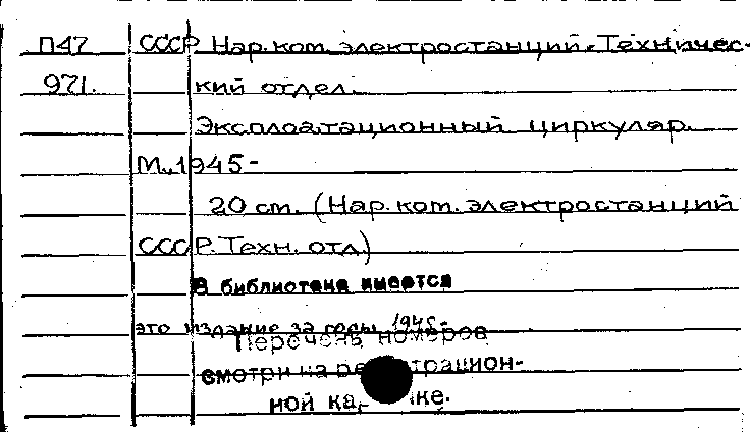 П47 СССР Нар.ком. электростанций. Техничес-
971. кий отдел.
Эксплоатационный циркуляр.
М., 1945-
20 см. (Нар.ком. электростанций
СССР. Техн. отд)
В библиотеке имеется
это издание за годы 1945-
Перечень номеров
смотри на регистрацион-
ной карточке.